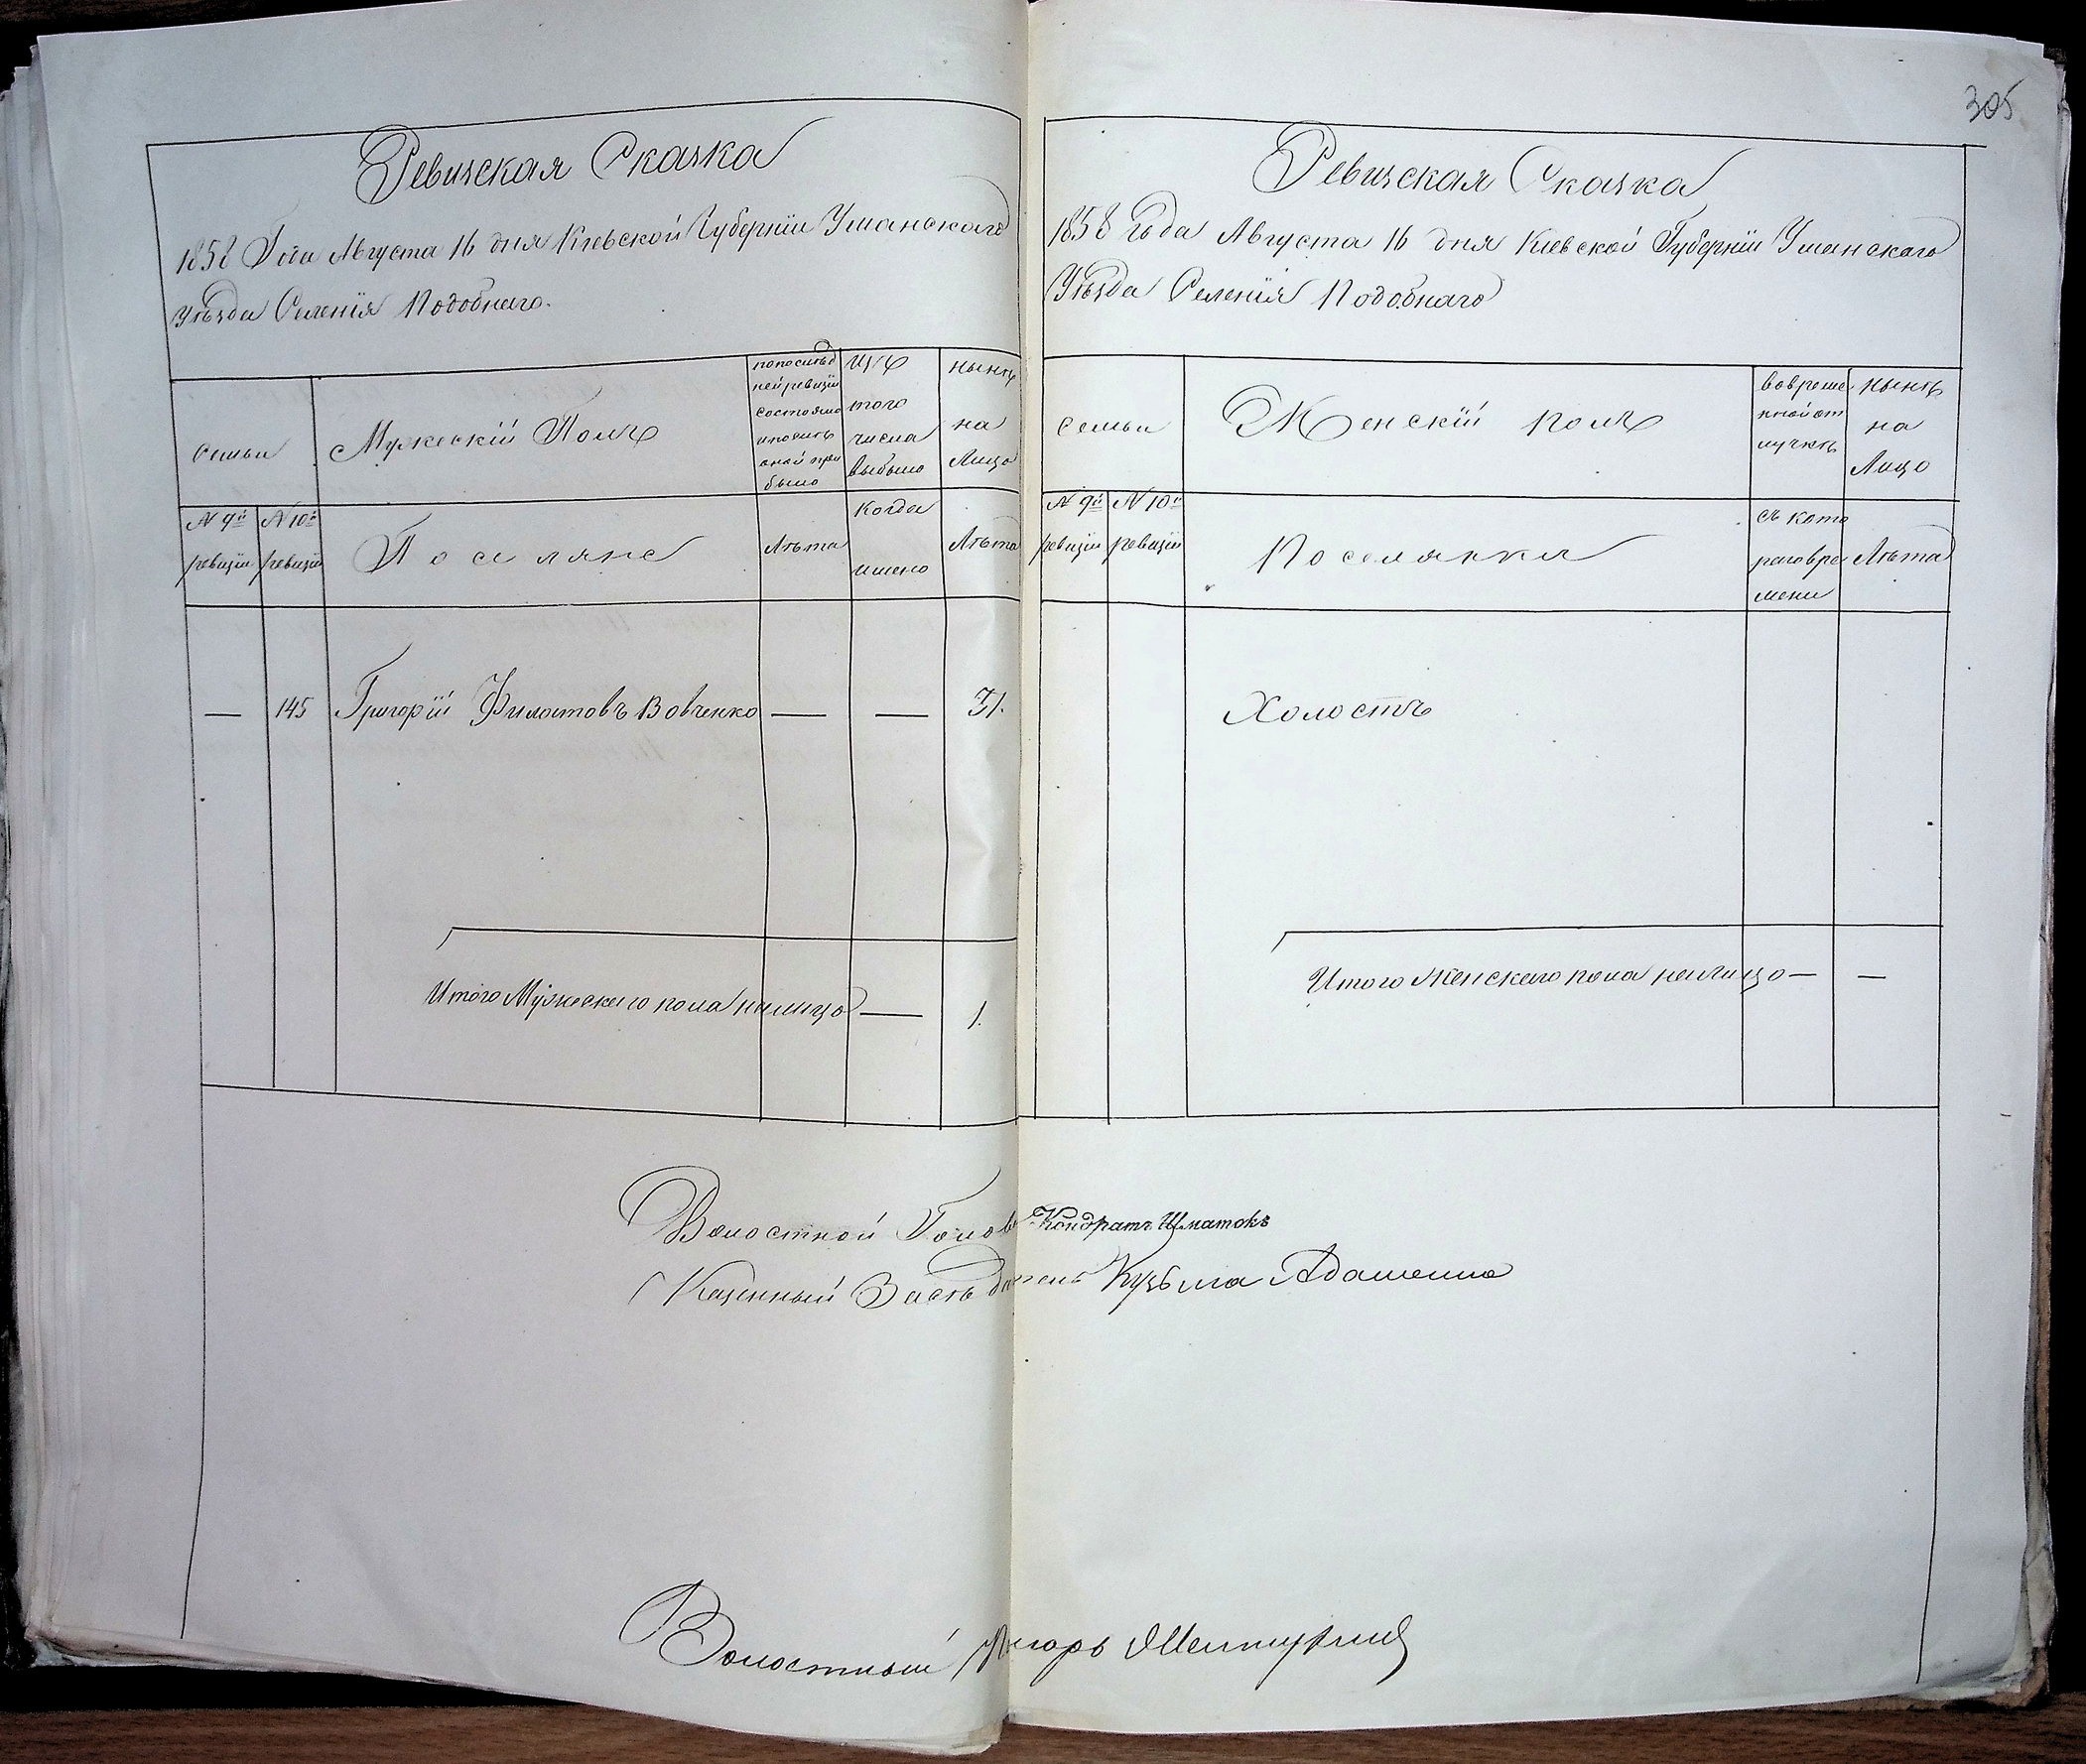 305
Ревизская Сказка
1858 Года Августа 16 дня Кіевской Губерніи Уманскаго
Уѣзда Селенія Подобнаго.
Семьи
Мужескій Полъ
по послѣд
ней ревизіи
состояло
и послѣ
оной при
было
Изъ
того
числа
выбыло
Нынѣ
на
Лицо
№ 9й
ревизіи
№ 10й
ревизіи
Поселяне
Лѣта
Когда
имено
Лѣта
— 145 Григорій Филатовъ Вовченко — — 31.
Итого Мужескаго пола налицо — 1.
Ревизская Сказка
1858 Года Августа 16 дня Кіевской Губерніи Уманскаго
Уѣзда Селенія Подобнаго
Семьи
Женскій полъ
во время
нной от
лучкѣ
Нынѣ
на
Лицо
№ 9й
ревизіи
№ 10й
ревизіи
Поселянки
съ кото
раго вре
мени
Лѣта
Холостъ
Итого Женскаго пола налицо — —
Волостной Голова Кондратъ Шматокъ
Казенный Засѣдатель Кузьма
Волостный Писарь